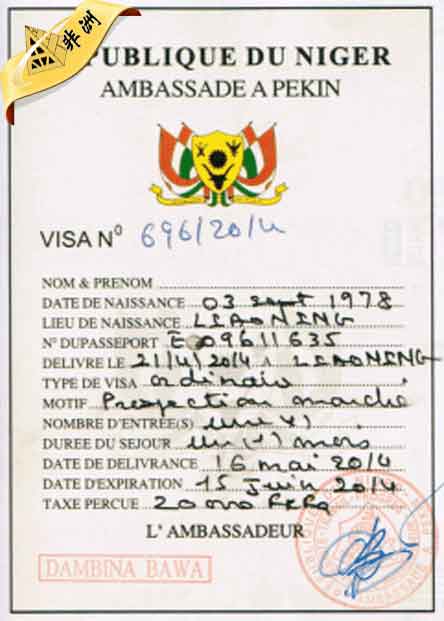 非洲
PUBLIQUE DU NIGER
AMBASSADE A PEKIN
VISA N° 696/2014
NOM & PRENOM
DATE DE NAISSANCE 03 sept 1978
LIEU DE NAISSANCE LIAONING
N° DUPASSEPORT E 09611635
DELIVRE LE 21/4/2014 A LIAONING
TYPE DE VISA ordinaire
MOTIF Prospection marche
NOMBRE D'ENTRÉE(S) une (1)
DUREE DU SEJOUR un (1) mois
DATE DE DELIVRANCE 16 mai 2014
DATE D'EXPIRATION 15 Juin 2014
TAXE PERCUE 20 000 FCFA
L'AMBASSADEUR
DAMBINA BAWA